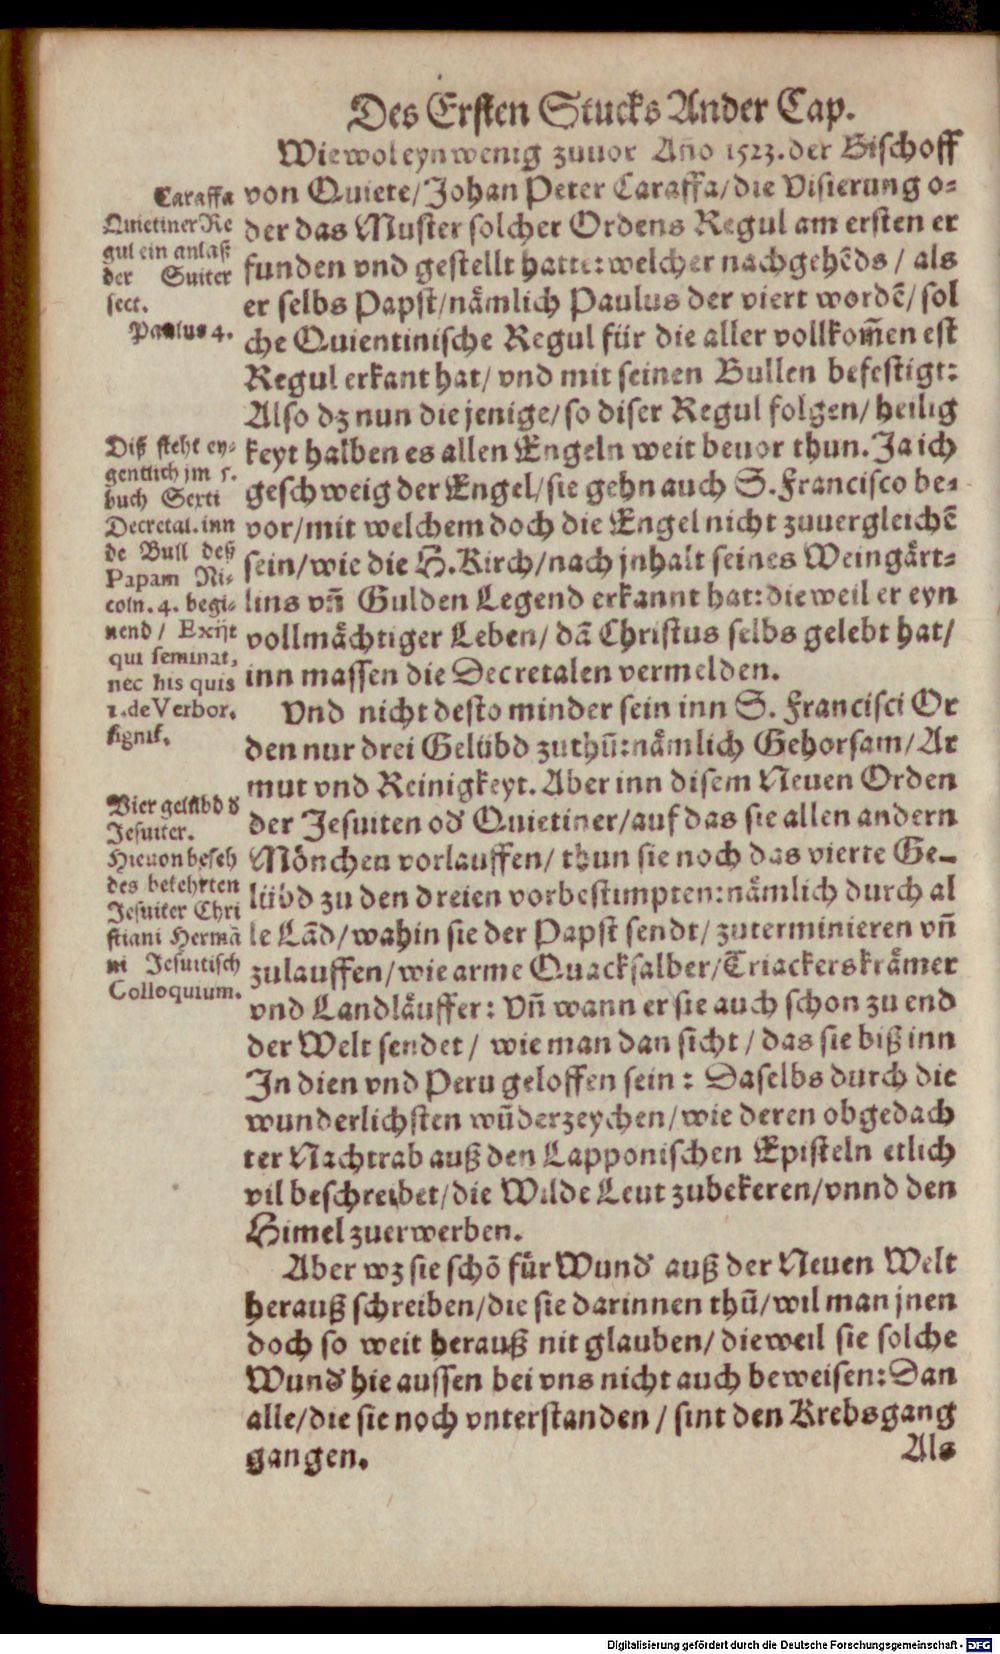 Des Ersten Stucks Ander Cap.
Wiewol eyn wenig zuuor Año 1523. der Bischoff
von Quiete/ Johan Peter Caraffa/ die Visierung o=
der das Muster solcher Ordens Regul am ersten er
funden vnd gestellt hatte: welcher nachgehēds / als
er selbs Papst/ nämlich Paulus der viert wordē/ sol
che Quientinische Regul für die aller vollkom̄en est
Regul erkant hat/ vnd mit seinen Bullen befestigt:
Also dz nun die jenige/ so diser Regul folgen/ heilig
keyt halben es allen Engeln weit beuor thun. Ja ich
geschweig der Engel/ sie gehn auch S. Francisco be=
vor/ mit welchem doch die Engel nicht zuuergleichē
sein/ wie die H. Kirch/ nach jnhalt seines Weingärt=
lins vn̄ Gulden Legend erkannt hat: dieweil er eyn
vollmächtiger Leben/ dā Christus selbs gelebt hat/
inn massen die Decretalen vermelden.
Vnd nicht desto minder sein inn S. Francisci Or
den nur drei Gelübd zuthū: nämlich Gehorsam/ Ar
mut vnd Reinigkeyt. Aber inn disem Neuen Orden
der Jesuiten od' Quietiner/ auf das sie allen andern
Mönchen vorlauffen/ thun sie noch das vierte Ge=
lübd zu den dreien vorbestimpten: nämlich durch al
le Lād/ wahin sie der Papst sendt/ zuterminieren vn̄
zulauffen/ wie arme Quacksalber/ Triackerskrämer
vnd Landläuffer: Vn̄ wann er sie auch schon zu end
der Welt sendet / wie man dan sicht / das sie biß inn
In dien vnd Peru geloffen sein : Daselbs durch die
wunderlichsten wūderzeychen/ wie deren obgedach
ter Nachtrab auß den Lapponischen Episteln etlich
vil beschreibet/ die Wilde Leut zubekeren/ vnnd den
Himel zuerwerben.
Aber wz sie schō für Wund' auß der Neuen Welt
herauß schreiben/ die sie darinnen thū/ wil man jnen
doch so weit herauß nit glauben/ dieweil sie solche
Wund' hie aussen bei vns nicht auch beweisen: Dan
alle/ die sie noch vnterstanden / sint den Krebsgang
gangen.
Als
Caraffa
Quietiner Re
gul ein anlaß
der Suiter
sect.
Paulus 4.
Diß steht ey=
gentlich jm 5.
buch Sexti
Decretal. inn
de Bull deß
Papam Ni=
coln. 4. begi=
nend / Exijt
qui seminat,
nec his quis
1. de Verbor.
signif.
Vier gelübd d'
Jesuiter.
Hieuon beseh
des bekehrten
Jesuiter Chri
stiani Hermā
ni Jesuitisch
Colloquium.
Digitalisierung gefördert durch die Deutsche Forschungsgemeinschaft - DFG